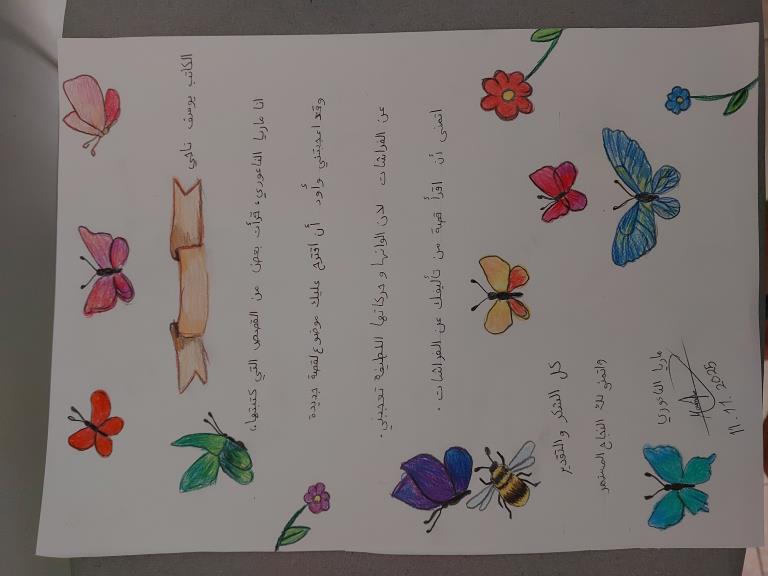 الكاتب يوسف ناجي
انا ماريا الناعوري، قرأت بعض من القصص التي كتبتها،
وقد اعجبتني وأود أن أقترح عليك موضوع لقصة جديدة
عن الفراشات لان الوانها و حركاتها اللطيفة تعجبني.
اتمنى أن اقرأ قصة من تأليفك عن الفراشات.
كل الشكر والتقدير
واتمنى لك النجاح المستمر
ماريا الناعوري
11.11.2025